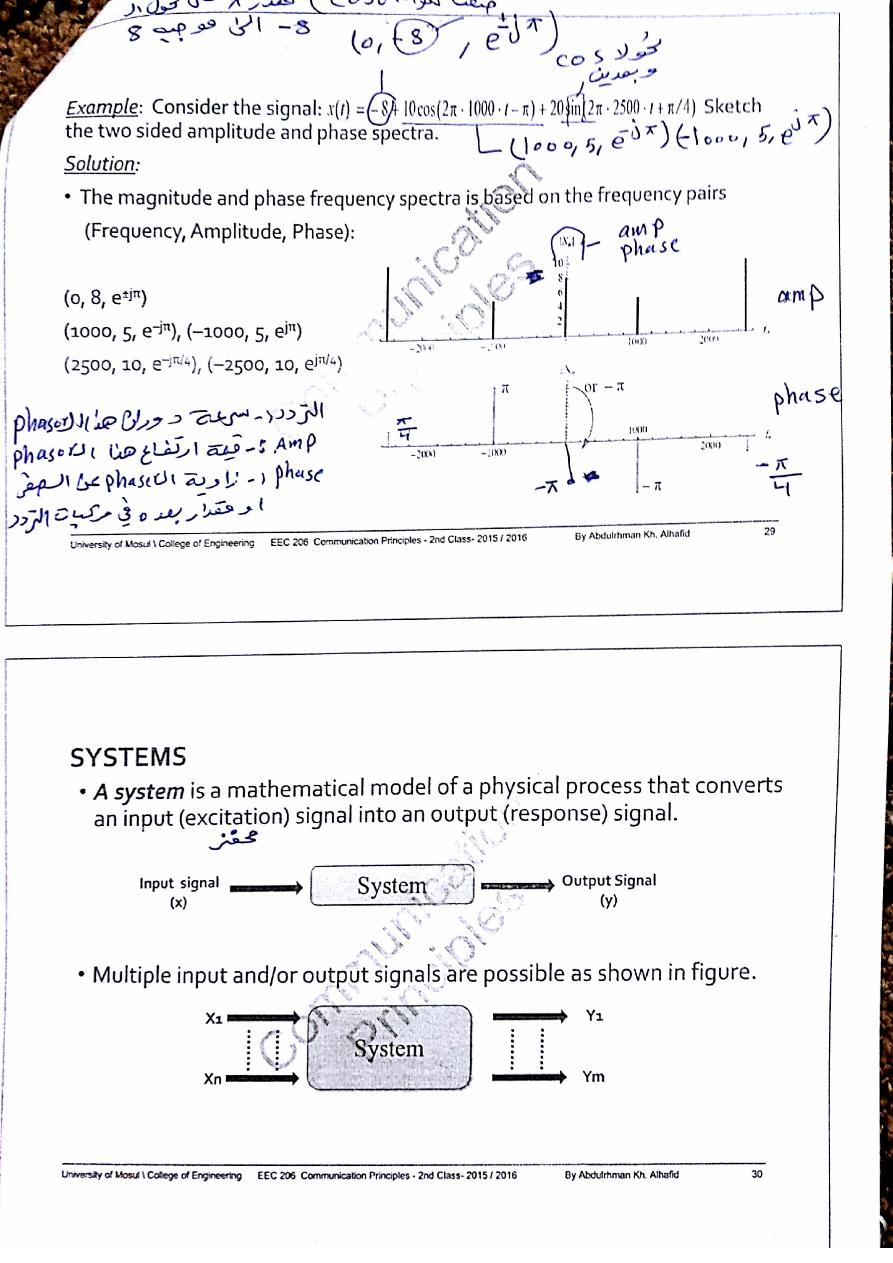 8- الى موجبه 8
(0, -8, e±jπ)
نحوله cos
وبعدين
Example: Consider the signal: x(t) = -8 + 10cos(2π · 1000 · t − π) + 20 sin(2π · 2500 · t + π/4) Sketch
the two sided amplitude and phase spectra.
(1000, 5, e-jπ) (-1000, 5, ejπ)
Solution:
• The magnitude and phase frequency spectra is based on the frequency pairs
(Frequency, Amplitude, Phase):
amp
phase
(0, 8, e±jπ)
(1000, 5, e−jπ), (−1000, 5, ejπ)
(2500, 10, e−jπ/4), (−2500, 10, ejπ/4)
10
8
6
4
2
amp
1000
2000
π
or − π
phase
π/4
-2000
-1000
1000
2000
-π
- π
-π/4
التردد :- سرعة دوران هذا ال phasor
Amp :- قيمة ارتفاع هذا ال phasor
phase :- زاوية ال phasor عن الصفر
او مقدار بعده في مركبات التردد
University of Mosul \ College of Engineering EEC 206 Communication Principles - 2nd Class- 2015 / 2016 By Abdulrhman Kh. Alhafid 29
Communication
Principles
SYSTEMS
• A system is a mathematical model of a physical process that converts
an input (excitation) signal into an output (response) signal.
محفز
Input signal
(x)
System
Output Signal
(y)
• Multiple input and/or output signals are possible as shown in figure.
X1
Xn
System
Y1
Ym
Communication
Principles
University of Mosul \ College of Engineering EEC 206 Communication Principles - 2nd Class- 2015 / 2016 By Abdulrhman Kh. Alhafid 30